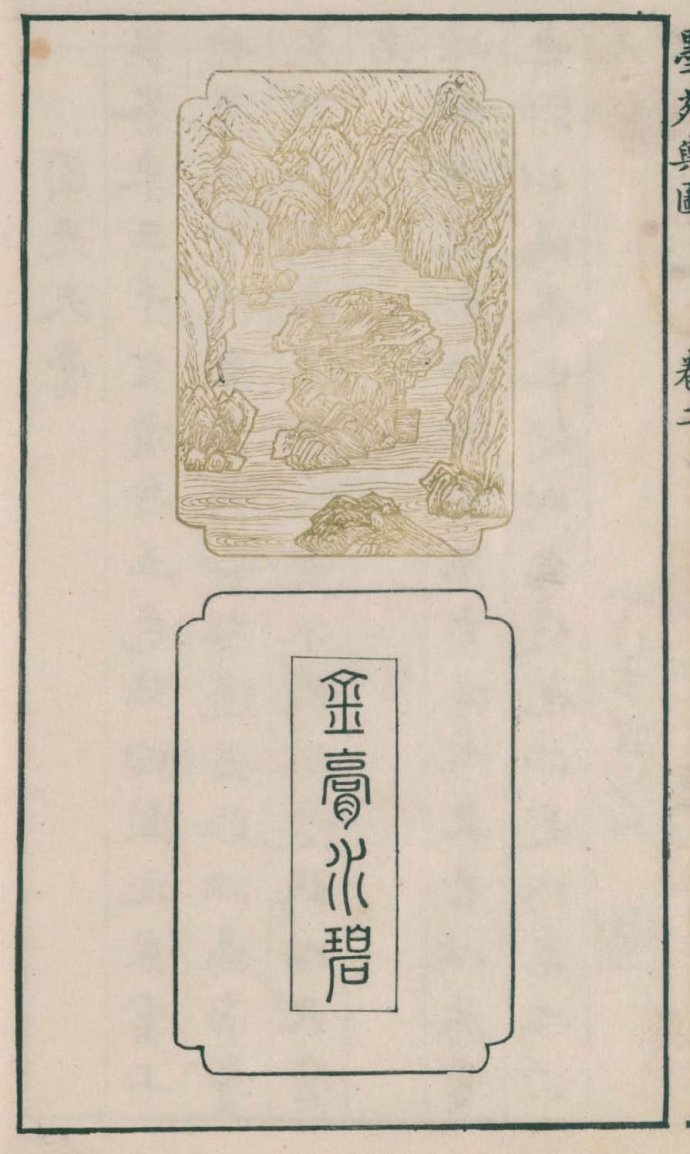 墨苑輿圖 卷二
金膏水碧